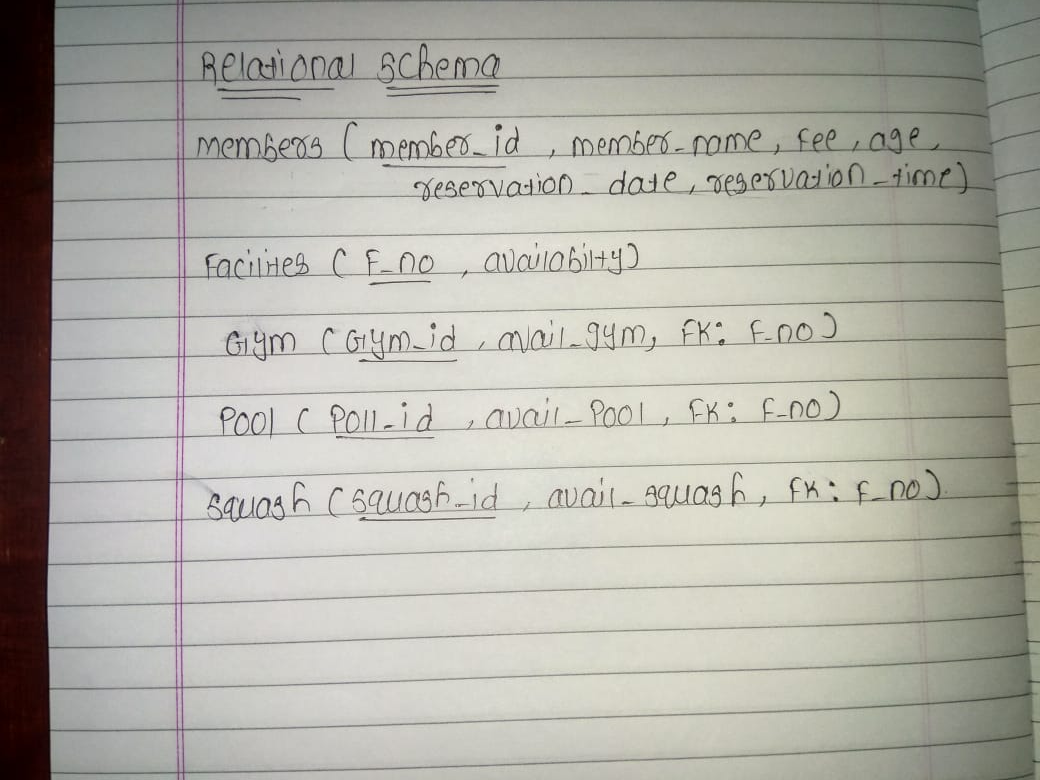 Relational Schema
members ( member_id , member_name , Fee , age ,
reservation_date , reservation_time )
Facilites ( F_no , availabilty )
Gym ( Gym_id , avail_gym, FK: F_no )
Pool ( Poll_id , avail_Pool , FK: F_no )
Squash ( squash_id , avail_squash , FK: F_no ).